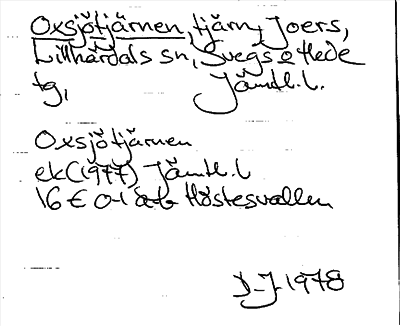 Oxsjötjärnen, tjärn, Joers,
Lillhärdals sn, Svegs o Hede
tg, Jämtl. l.
Oxsjötjärnen
ek (1977) Jämtl. l
16 E 0-1 a-b Höstesvallen
D-J- 1978